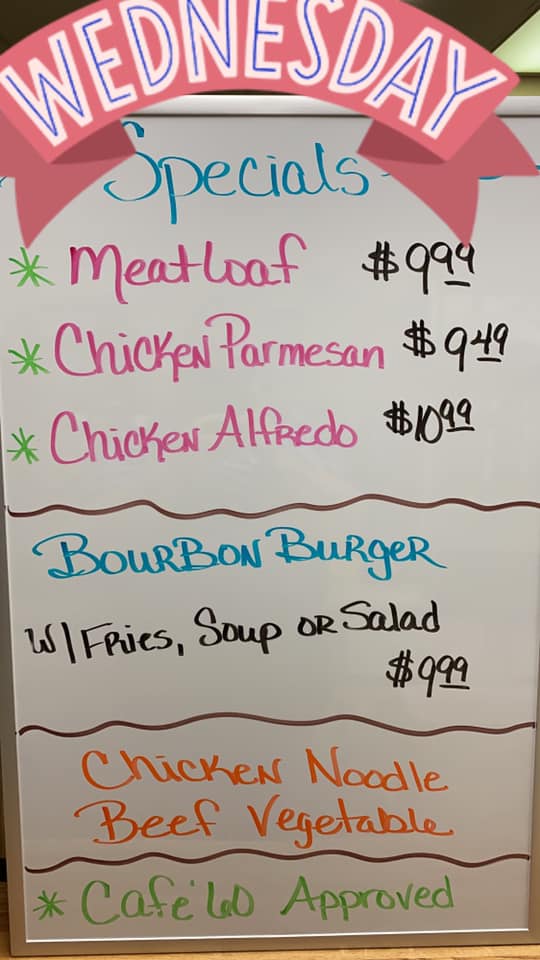 WEDNESDAY
Specials
* Meatloaf $9.99
* Chicken Parmesan $9.49
* Chicken Alfredo $10.99
Bourbon Burger
W/ Fries, Soup or Salad
$9.99
Chicken Noodle
Beef Vegetable
* Café 60 Approved